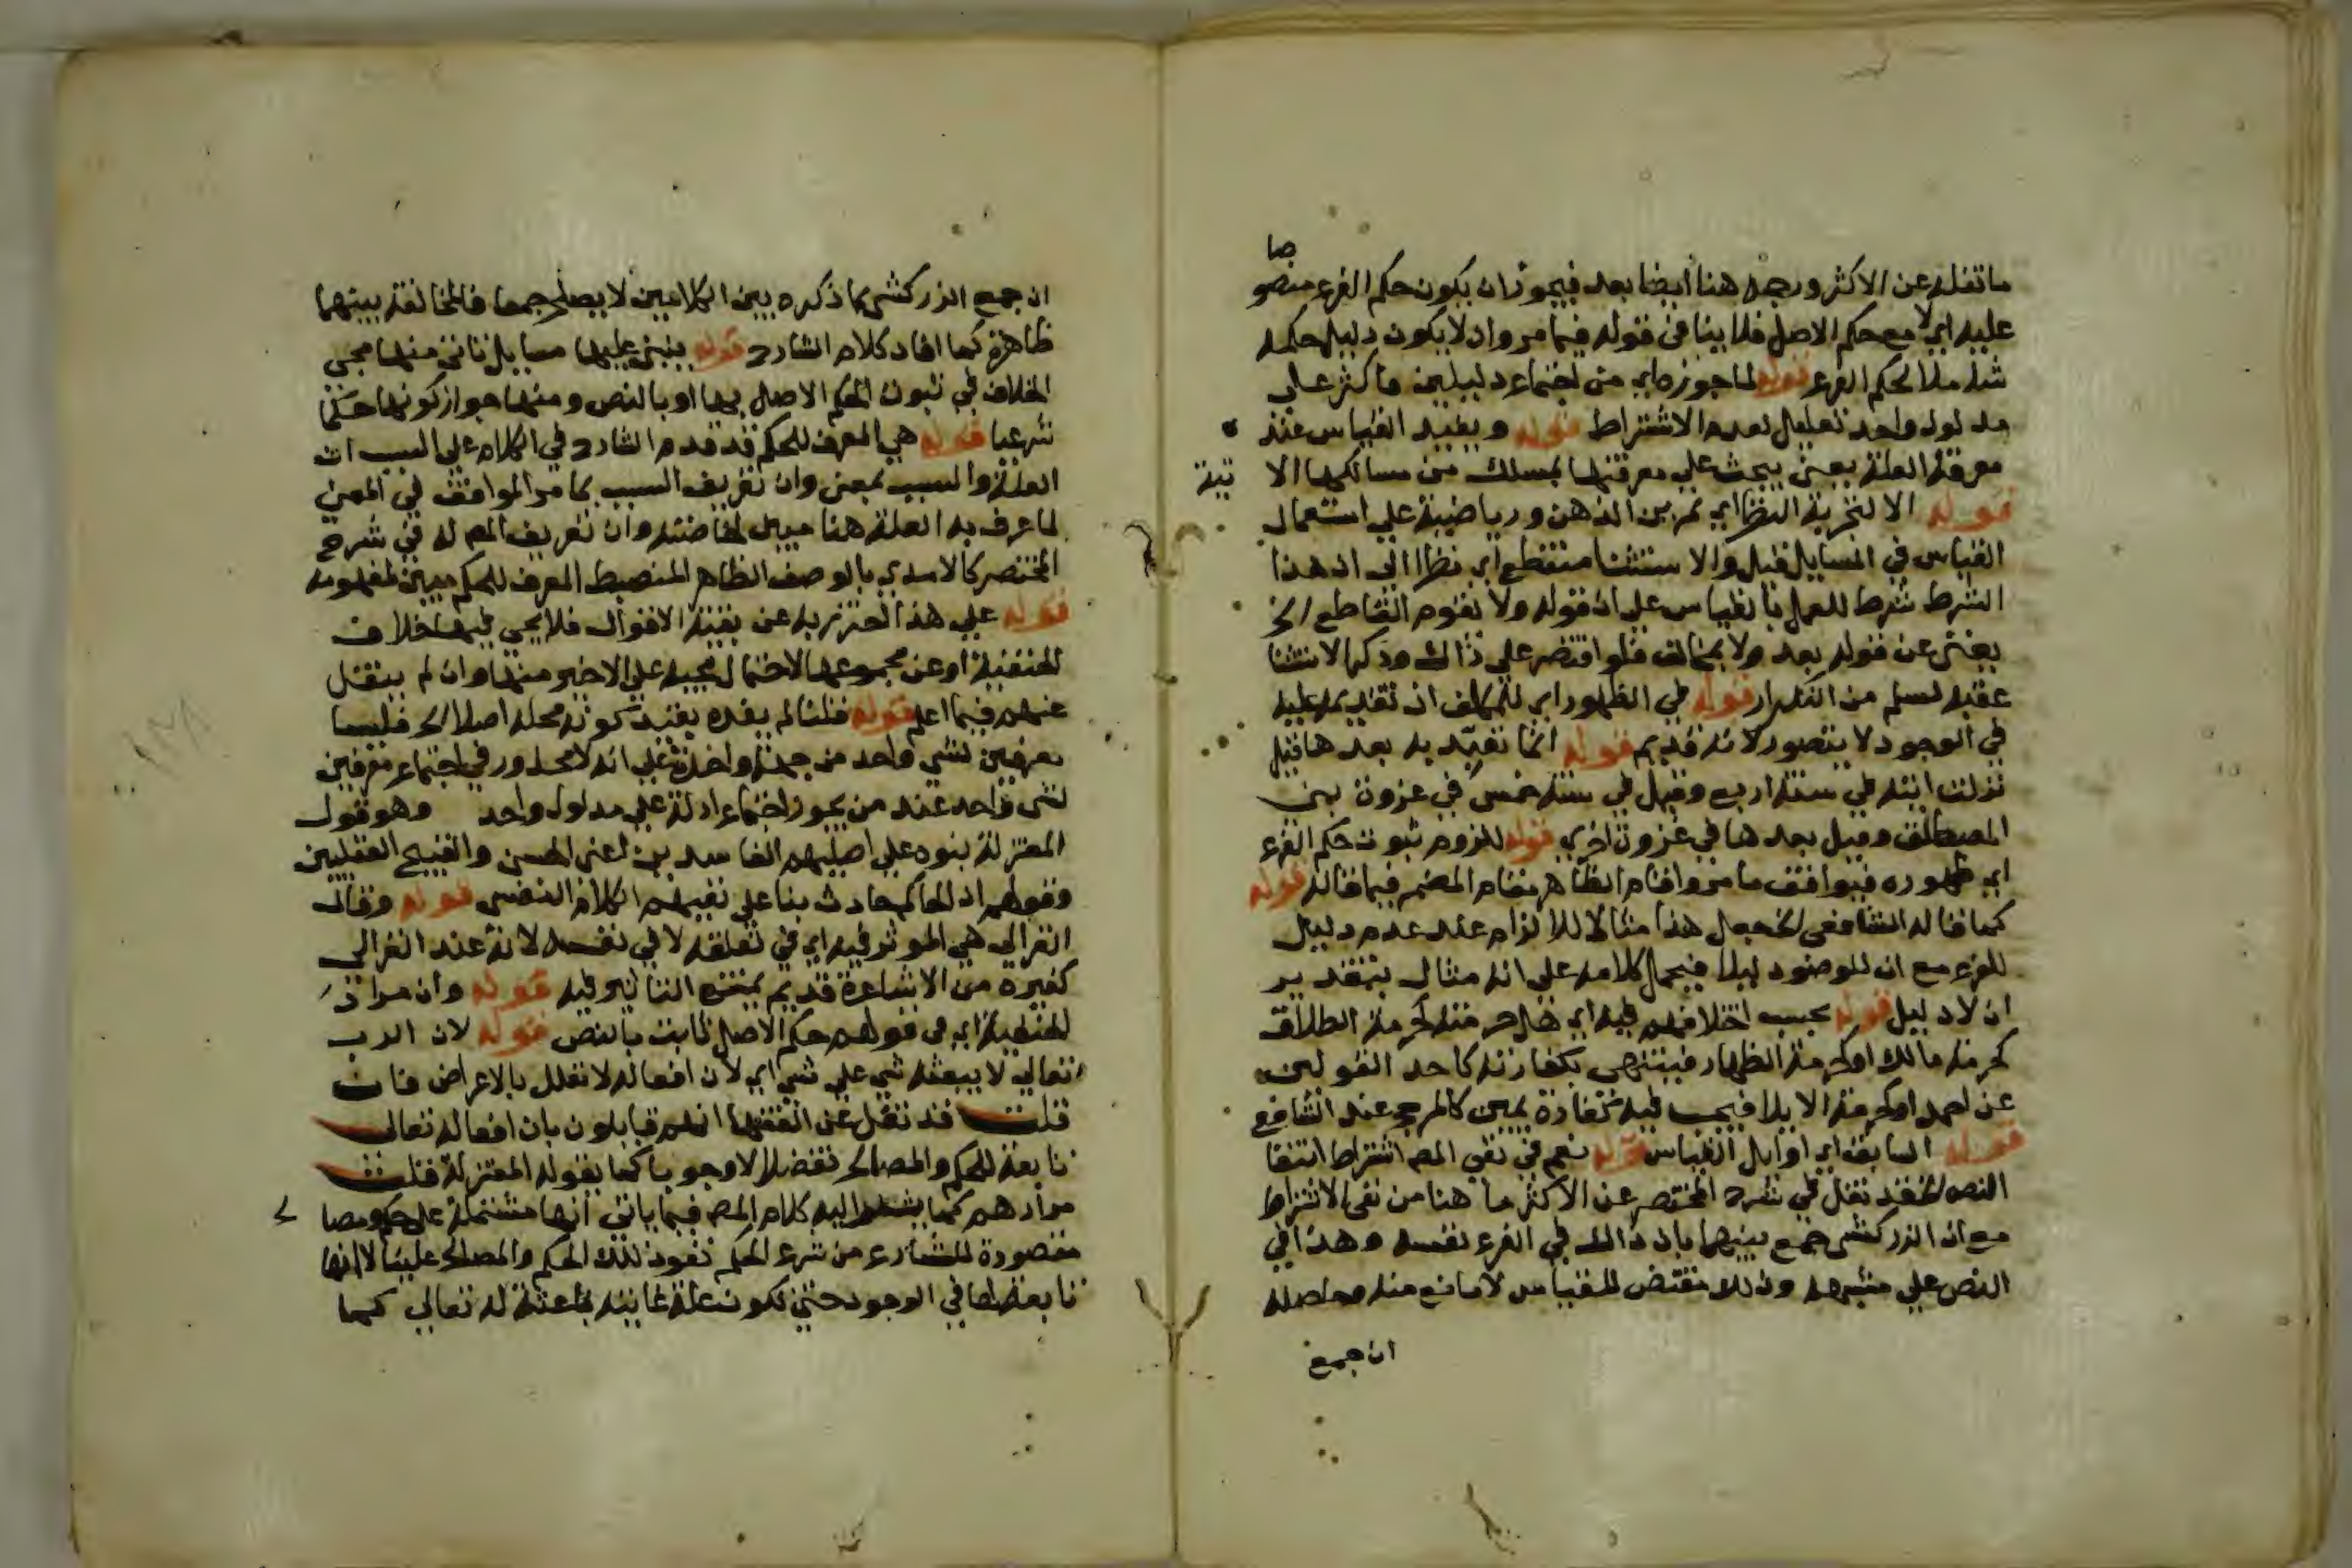 ما نقله عن الاكثر ورجحه هنا أيضا بعد فيجوز ان يكون حكم الفرع منصو صا
عليه اي لا مع حكم الاصل فلا ينافي قوله فيما مر وان لا يكون دليل حكمه
شاملا لحكم الفرع قوله لما جوزه اي من اجتماع دليلين فاكثر على
مدلول واحد تعليل لعدم الاشتراط قوله ويفيد القياس عند
معرفة العلة يعني يبحث على معرفتها بمسلك من مسالكها الا تية
قوله الا لتجربة النظر اي تمرين الذهن ورياضية على استعمال
القياس في المسايل قيل والاستثنا منقطع اي نظرا الى ان هذا
الشرط شرط للعمل بالقياس على ان قوله ولا يقوم القاطع الخ
يغني عن قوله بعد ولا يخالف فلو اقتصر على ذالك وذكر الاستثنا
عقبه لسلم من التكرار قوله في الظهور اي للمكلف ان تقديمه عليه
في الوجود لا يتصور لانه قديم قوله انما تعبد به بعد ها قيل
نزلت ايته في سنة اربع وقيل في سنة خمس في غزوة بني
المصطلق وقيل بعد ها في غزوة اخري قوله للزوم ثبوت حكم الفرع
اي ظهوره فيوافق ما مر واقام الظاهر مقام المضمر فيما قاله قوله
كما قاله الشافعي الخ جعل هذا مثالا للالزام عند عدم دليل
للفرع مع ان للوضود ليلا فيحمل كلامه على انه مثال بتقدير
ان لا دليل قوله بحسب اختلافهم فيه اي هل حرمته كحرمة الطلاق
كحرمة مالك او كحرمة الظهار فينتهي بكفارته كاحد القولين
عن احمد او كحرمة الايلا فيجب فيه كفارة يمين كالمرجح عند الشافعي
قوله السابقة اي اوايل القياس قوله نعم في نفي المص اشتراط انتفا
النص الخ فقد نقل في شرح المختصر عن الاكثر ما هنا من نفي الاشتراط
مع ان الزركشي جمع بينهما بان ذالك في الفرع نفسه وهذا في
النص على مشبهه وذلك مقتض للقياس لا مانع منه وحاصله
ان جمع
ان جمع الزركشي بما ذكره بين الكلامين لا يصلح جمعا فالمخالفة بينهما
ظاهرة كما افاد كلام الشارح قوله ينبني عليها مسايل تاتي منها مجي
الخلاف في ثبوت الحكم الاصل بها او بالنص ومنها جواز كونها حكما
شرعيا قوله هي المعرف للحكم قد قدم الشارح في الكلام على السبب ان
العلة والسبب بمعنى وان تعريف السبب بما مر الموافق في المعنى
لما عرف به العلة هنا مبين لخاصته وان تعريف المص له في شرح
المختصر كالامدي بالوصف الظاهر المنضبط المعرف للحكم مبين لمفهومه
قوله على هذا احترز به عن بقية الاقوال فلا يجي فيها خلاف
الحنفية او عن مجموعها لاحتمال مجيه على الاخير منها وان لم ينقل
عنهم فيما اعلم قوله قلنا لم يفده بقيد كونه محله اصلا الخ فليسا
معرفين لشي واحد من جهة واحدة على انه لا محذور في اجتماع معرفين
لشي واحد عند من يجوز اجتماع ادلة على مدلول واحد وهو قول
المعتزلة بنوه على اصليهم الفاسدين اعني الحسن والقبيح العقليين
وقولهم ان الحكم حادث بنا على نفيهم الكلام النفسي قوله وقال
الغزالي هي الموثر فيه اي في تعلقه لا في نفسه لانه عند الغزالي
كغيره من الاشاعرة قديم يمتنع التاثير فيه قوله وان مراد
الحنفية اي في قولهم حكم الاصل ثابت بالنص قوله لان الرب
تعالى لا يبعثه شي على شي اي لان افعاله لا تعلل بالاعراض فان
قلت قد نقل عن الفقها انهم قايلون بان افعاله تعالى
تابعة للحكم والمصالح تفضلا لا وجوبا كما يقوله المعتزلة قلت
مرادهم كما يشير اليه كلام المص فيما ياتي انها مشتملة على حكم ومصا لح
مقصودة للشارع من شرع الحكم تعود تلك الحكم والمصالح علينا لا انها
تابعة لها في الوجود حتى تكون علة غايية باعثة له تعالى كما